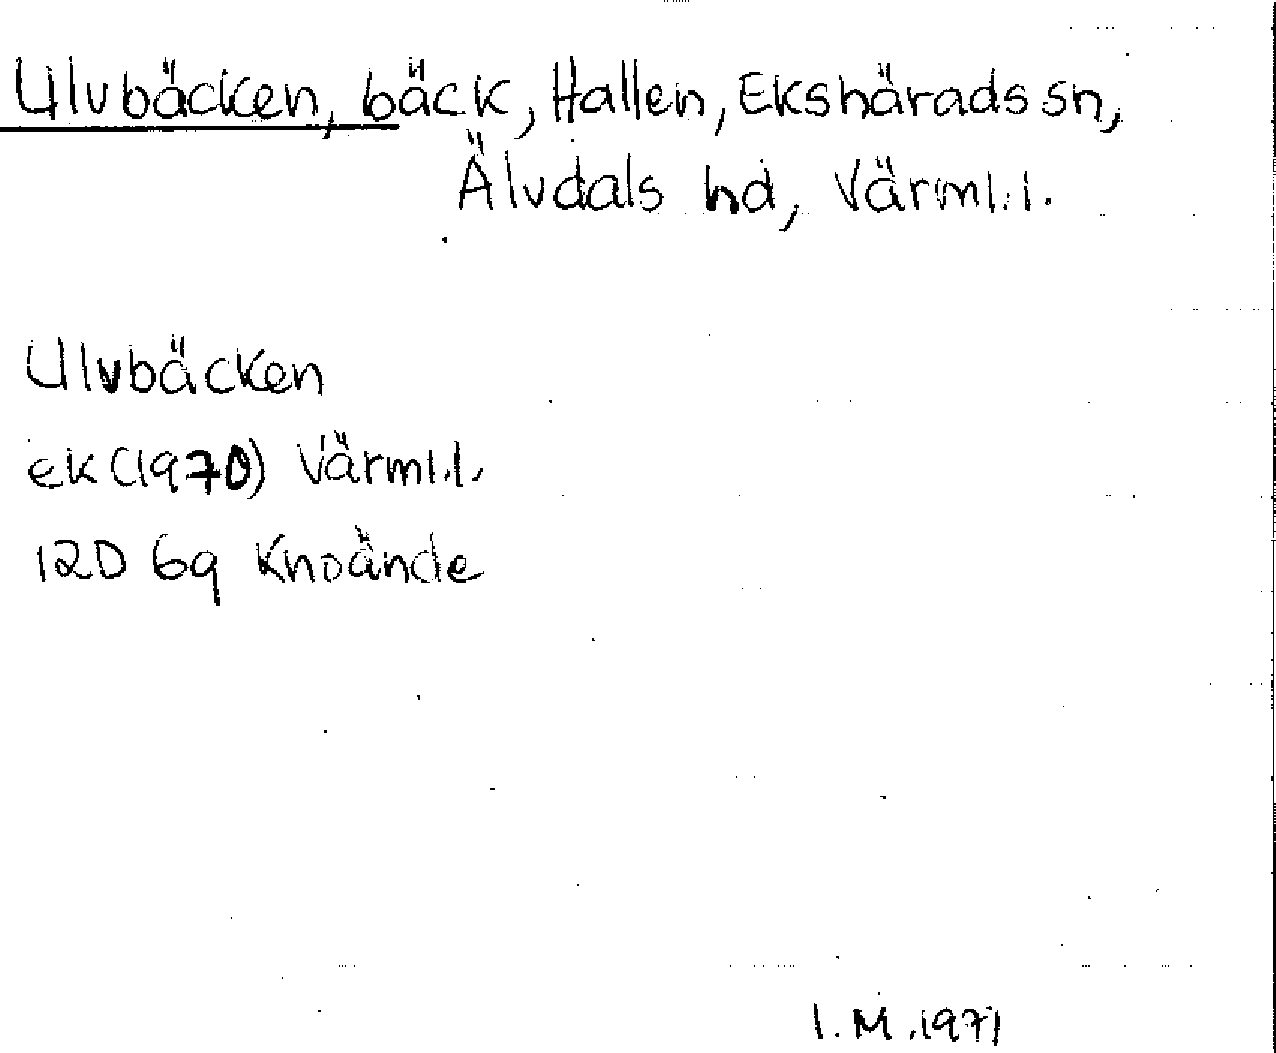 Ulvbäcken, bäck, Hallen, Ekshärads sn,
Älvdals hd, Värml.l.
Ulvbäcken
ek (1970) Värml.l.
12D 6g Knoände
I.M. 1971